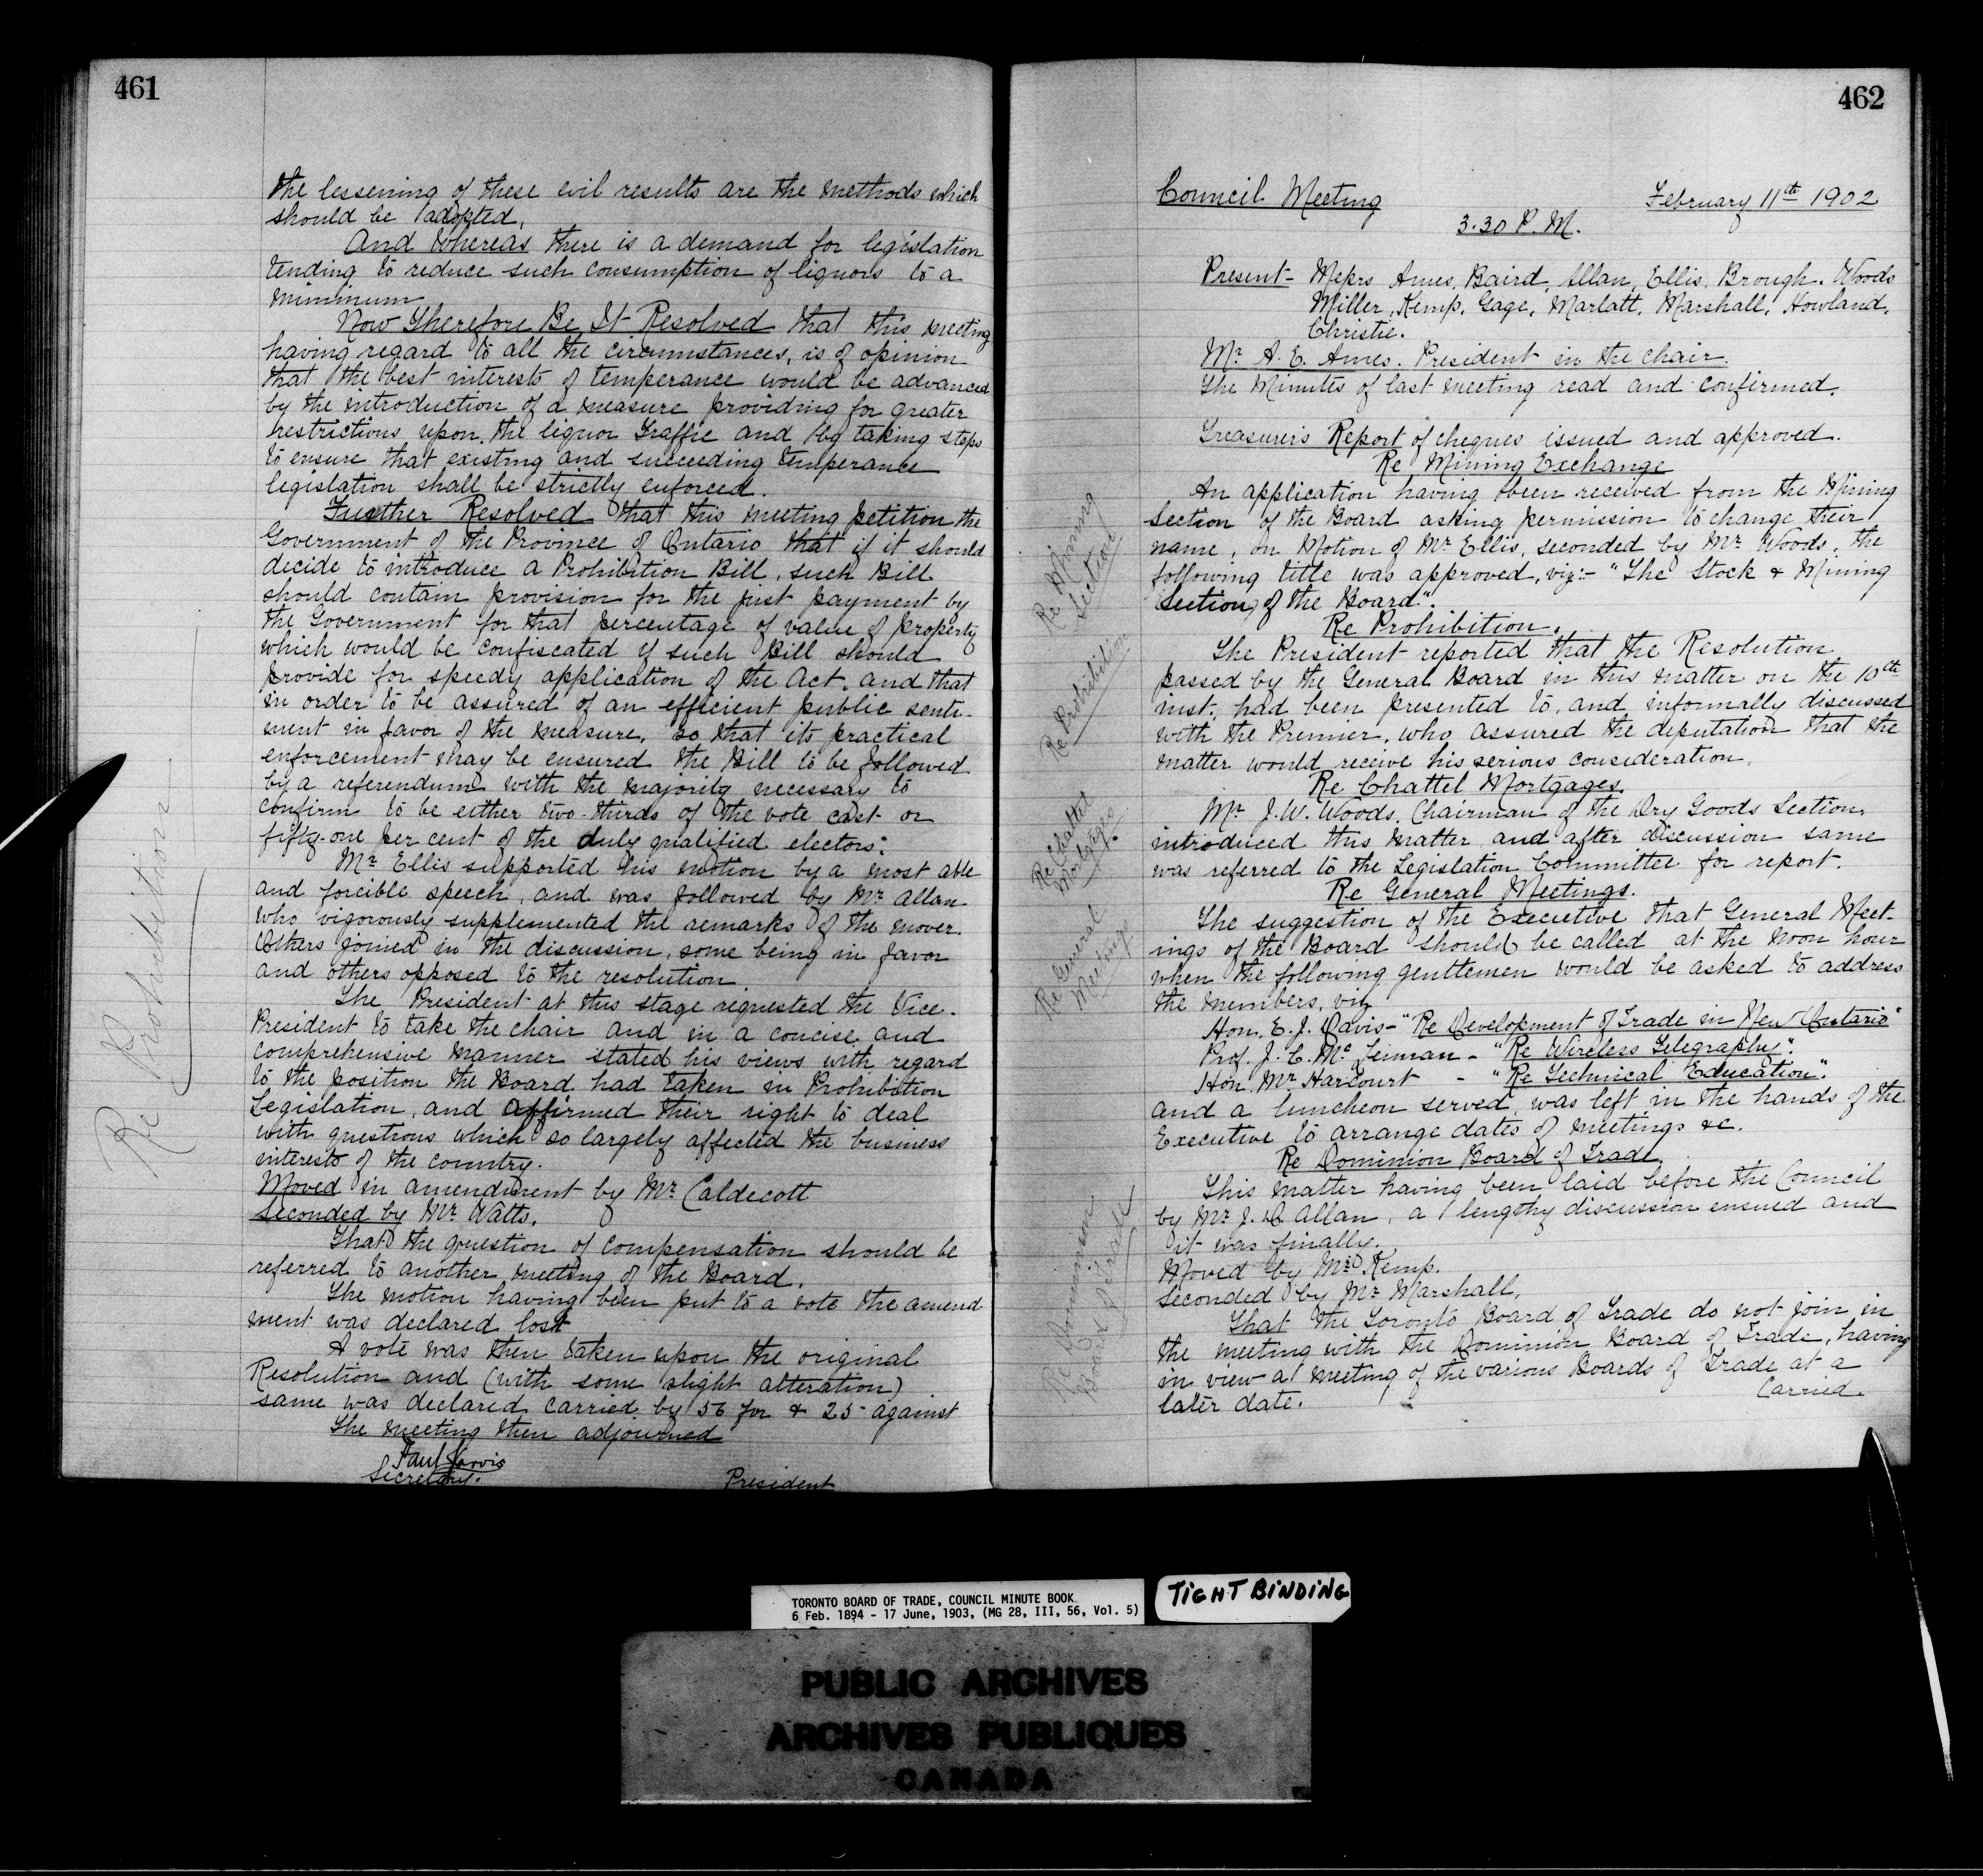 461
the lessening of these evil results are the methods which
should be adopted,
And Whereas there is a demand for legislation
tending to reduce such consumption of liquors to a
minimum
Now Therefore Be It Resolved that this meeting
having regard to all the circumstances, is of opinion
that the best interests of temperance would be advanced
by the introduction of a measure providing for greater
restrictions upon the liquor traffic and by taking steps
to ensure that existing and succeeding temperance
legislation shall be strictly enforced.
Further Resolved that this meeting petition the
Government of the Province of Ontario that if it should
decide to introduce a Prohibition Bill, such Bill
should contain provision for the just payment by
the Government for that percentage of value of property
which would be confiscated if such Bill should
provide for speedy application of the Act, and that
in order to be assured of an efficient public senti-
ment in favor of the measure, so that its practical
enforcement may be ensured the Bill to be followed
by a referendum with the majority necessary to
confirm to be either two-thirds of the vote cast or
fifty-one per cent of the duly qualified electors:
Mr Ellis supported his motion by a most able
and forcible speech, and was followed by Mr Allan
who vigorously supplemented the remarks of the mover.
Others joined in the discussion, some being in favor
and others opposed to the resolution
The President at this stage requested the Vice-
President to take the chair and in a concise and
comprehensive manner stated his views with regard
to the position the Board had taken in Prohibition
Legislation, and affirmed their right to deal
with questions which so largely affected the business
interests of the country.
Moved in amendment by Mr Caldecott
Seconded by Mr Watts.
That the question of compensation should be
referred to another meeting of the Board.
The motion having been put to a vote the amend
ment was declared lost
A vote was then taken upon the original
Resolution and (with some slight alteration)
same was declared carried by 56 for & 25 against
The meeting then adjourned
Paul Jarvis
Secretary.
President
Re Prohibition
462
Council Meeting
February 11th 1902
3.30 P.M.
Present - Messrs Ames, Baird, Allan, Ellis, Brough, Woods
Miller, Kemp, Gage, Marlatt, Marshall, Howland,
Christie.
Mr A. E. Ames. President in the chair.
The Minutes of last meeting read and confirmed.
Treasurer's Report of cheques issued and approved.
Re Mining Exchange
An application having been received from the Mining
Section of the Board asking permission to change their
name, on Motion of Mr Ellis, seconded by Mr Woods, the
following title was approved, viz:- "The Stock & Mining
Section of the Board".
Re Prohibition.
The President reported that the Resolution
passed by the General Board in this matter on the 10th
inst, had been presented to, and informally discussed
with the Premier, who assured the deputation that the
matter would receive his serious consideration.
Re Chattel Mortgages.
Mr J. W. Woods, Chairman of the Dry Goods Section,
introduced this matter and after discussion same
was referred to the Legislation Committee for report.
Re General Meetings.
The suggestion of the Executive that General Meet-
ings of the Board should be called at the noon hour
when the following gentlemen would be asked to address
the members, viz
Hon. E. J. Davis - "Re Development of Trade in New Ontario"
Prof. J. C. McLennan - "Re Wireless Telegraphy".
Hon Mr Harcourt - "Re Technical Education".
and a luncheon served, was left in the hands of the
Executive to arrange dates of meetings &c.
Re Dominion Board of Trade
This matter having been laid before the Council
by Mr J. D. Allan, a lengthy discussion ensued and
it was finally.
Moved by Mr Kemp.
Seconded by Mr Marshall,
That the Toronto Board of Trade do not join in
the meeting with the Dominion Board of Trade, having
in view a meeting of the various Boards of Trade at a
later date.
Carried.
Re Mining
Section
Re Prohibition
Re Chattel
Mortgages.
Re General
Meetings
Re Dominion
Board of Trade
TORONTO BOARD OF TRADE, COUNCIL MINUTE BOOK
6 Feb. 1894 - 17 June, 1903, (MG 28, III, 56, Vol. 5)
TIGHT BINDING
PUBLIC ARCHIVES
ARCHIVES PUBLIQUES
CANADA